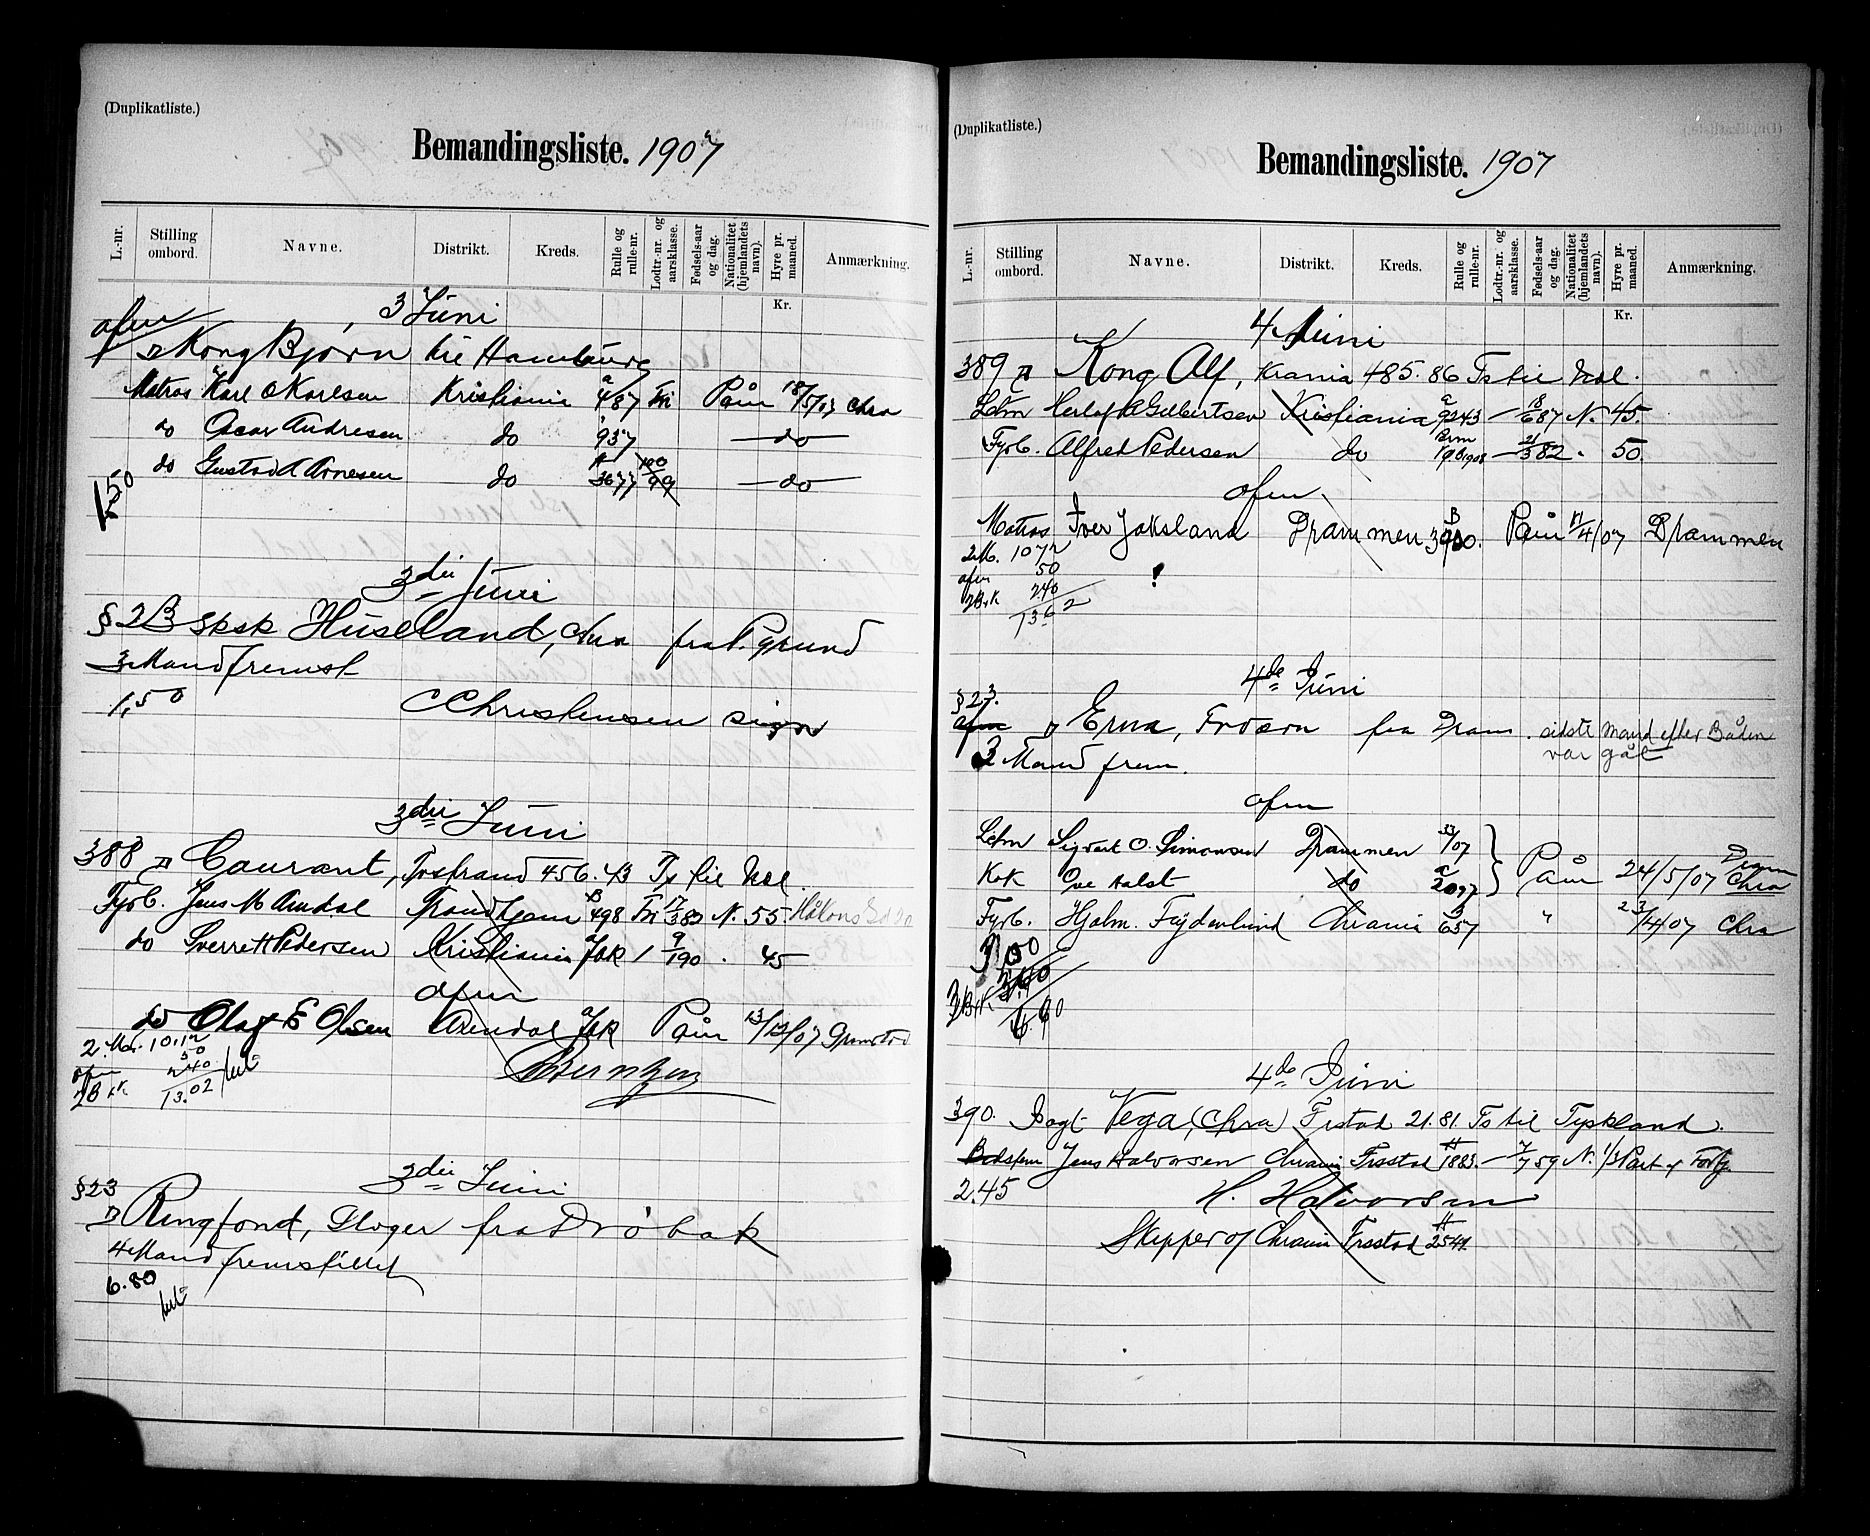 (Duplikatliste.)
Bemandingsliste. 1907
L.-nr. Stilling ombord. Navne. Distrikt. Kreds. Rulle og rulle-nr. Lodtr.-nr. og aarsklasse. Fødsels-aar og dag. Nationalitet (hjemlandets navn). Hyre pr. maaned. Anmærkning.
Kr.
3 Juni
afm
Kong Bjørn til Hamburg
Matros Karl Karlsen Kristiania a 487 Fri Påm 18/5/07 Chra
do Oscar Andresen do 937 — do —
do Gustav A Arnesen do 3677 100/99 — do —
1,50
3die Juni
§ 2 B Sksk Huseland, Chra fra P. grund
3 Mand fremst
1,50 C Christensen sign
3die Juni
388 D Courant, Tvestrand 456.43 Ts til Kol.
Fyrb. Jens M Amdal Trondhjem B 498 Fri 17/3 83 N. 55.
do Sverre H Pedersen Kristiania a JoK 1 9/1 90 . 45 —
afm
do Olaf E Olsen Arendal a JoK Påm 13/12/07 Grimstad
2. Mø. 10.12
afm 50
2 B & K 240
13.02
3die Juni
§ 23
D Ringfond, Sloger fra Drøbak
4 Mand fremstillet
6.80
(Duplikatliste.)
Bemandingsliste. 1907
L.-nr. Stilling ombord. Navne. Distrikt. Kreds. Rulle og rulle-nr. Lodtr.-nr. og aarsklasse. Fødsels-aar og dag. Nationalitet (hjemlandets navn). Hyre pr. maaned. Anmærkning.
Kr.
4 Juni
389 D Kong Alf, Krania 485.86 Ts til Kol.
Letm Herlof A Gilbertsen Kristiania a 9243 — 18/6 87 N. 45.
Fyrb. Alfred Pedersen do 190 1908 — 21/3 82 . 50.
afm
Matros Iver Jaksland Drammen B 3900. Påm 17/4/07 Drammen
2 M. 1072
afm 50
2 B & K 240
1362
4de Juni
§ 23.
D Erna, Trosvn fra Dram. sidste mand efter Båden var gåt
3 Mand frem.
afm
Letm Sigvart O. Simonsen Drammen 33/07
Kok Ove Halst do a 2097 Påm 24/5/07 Dram Chra
Fyrb. Hjalm. Frydenlund Chrania B 657 " 23/4/07 Chra
240
2 B & K
6.90
4de Juni
390. Jagt Vega, (Chra) Frstad 21.81. Ts til Tyskland.
Bedstem Jens Halvorsen Chrania Frestad H 1883. — 7/7 59 N. 1/3 Part af Fortj.
2.45 H. Halvorsen
Skipper af Chrania Frestad H 2541